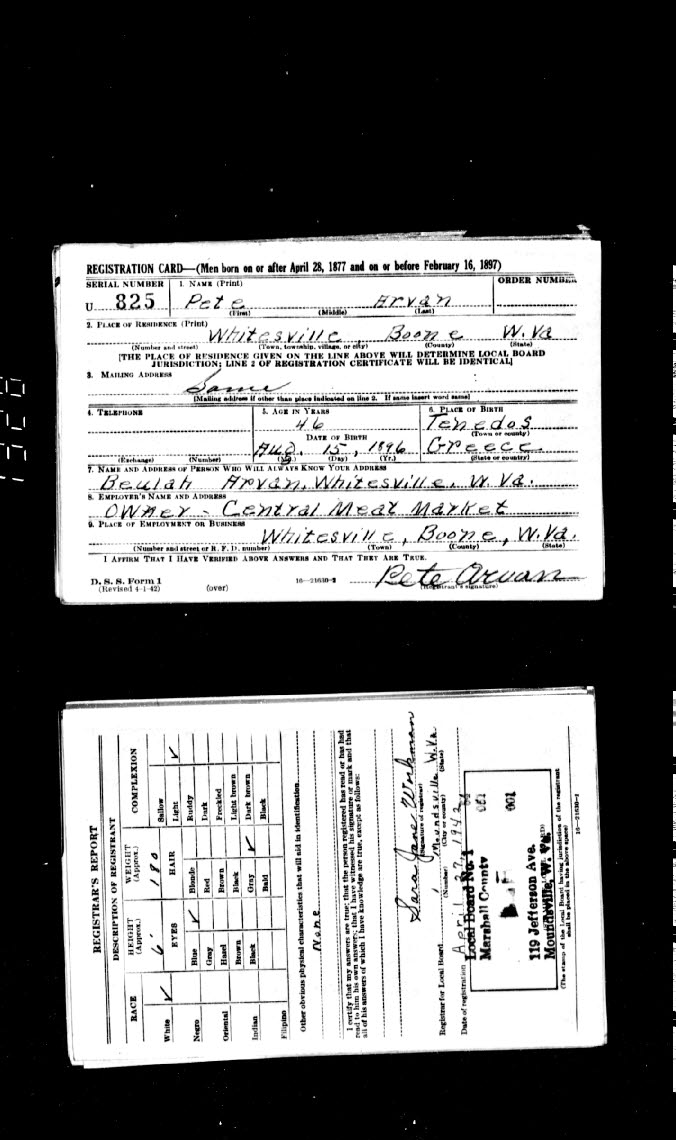 REGISTRATION CARD—(Men born on or after April 28, 1877 and on or before February 16, 1897)
SERIAL NUMBER 1. NAME (Print) ORDER NUMBER
U 825 Pete Arvan
(First) (Middle) (Last)
2. PLACE OF RESIDENCE (Print)
Whitesville, Boone W. Va
(Number and street) (Town, township, village, or city) (County) (State)
[THE PLACE OF RESIDENCE GIVEN ON THE LINE ABOVE WILL DETERMINE LOCAL BOARD
JURISDICTION; LINE 2 OF REGISTRATION CERTIFICATE WILL BE IDENTICAL]
3. MAILING ADDRESS
Same
[Mailing address if other than place indicated on line 2. If same insert word same]
4. TELEPHONE 5. AGE IN YEARS 6. PLACE OF BIRTH
46 Tenedos
DATE OF BIRTH (Town or county)
Aug. 15, 1896 Greece
(Exchange) (Number) (Mo.) (Day) (Yr.) (State or country)
7. NAME AND ADDRESS OF PERSON WHO WILL ALWAYS KNOW YOUR ADDRESS
Beulah Arvan, Whitesville, W. Va.
8. EMPLOYER'S NAME AND ADDRESS
Owner - Central Meat Market
9. PLACE OF EMPLOYMENT OR BUSINESS
Whitesville, Boone, W. Va.
(Number and street or R. F. D. number) (Town) (County) (State)
I AFFIRM THAT I HAVE VERIFIED ABOVE ANSWERS AND THAT THEY ARE TRUE.
Pete Arvan
D. S. S. Form 1
(Revised 4-1-42) (over) 16—21630-2 (Registrant's signature)
REGISTRAR'S REPORT
DESCRIPTION OF REGISTRANT
RACE HEIGHT (Approx.) WEIGHT (Approx.) COMPLEXION
White ✓ 6' 180 Sallow
EYES HAIR Light ✓
Negro Blue ✓ Blonde Ruddy
Gray Red Dark
Oriental Hazel Brown Freckled
Brown Black Light brown
Indian Black Gray ✓ Dark brown
Bald Black
Filipino
Other obvious physical characteristics that will aid in identification
None
I certify that my answers are true; that the person registered has read or has had
read to him his own answers; that I have witnessed his signature or mark and that
all of his answers of which I have knowledge are true, except as follows:
Sara Jane Workman
(Signature of registrar)
Registrar for Local Board 1 Moundsville W. Va
(Number) (City or county) (State)
Date of registration April 27, 1942
Local Board No. 1
Marshall County
001
119 Jefferson Ave.
Moundsville, W. Va.
(The stamp of the Local Board having jurisdiction of the registrant
shall be placed in the above space)
16—21630-2